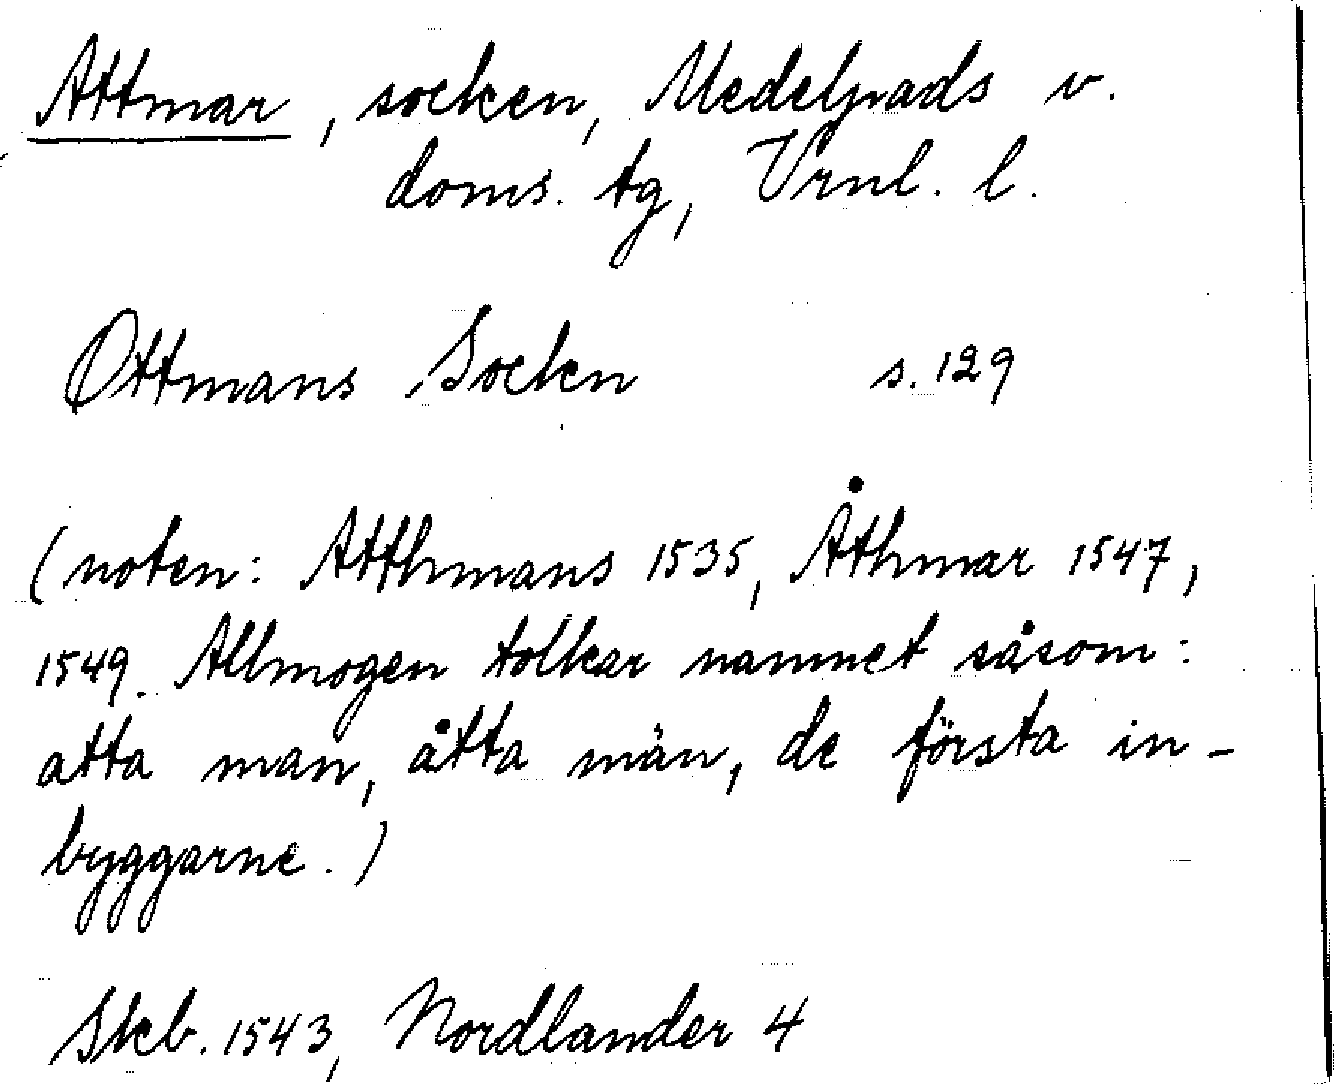 Attmar, socken, Medelpads v.
doms. tg, Vrnl. l.
Ottmans Socken s. 129
(noten: Atthmans 1535, Åthmar 1547,
1549. Allmogen tolkar namnet såsom:
atta man, åtta män, de första in-
byggarne.)
Skb. 1543, Nordlander 4